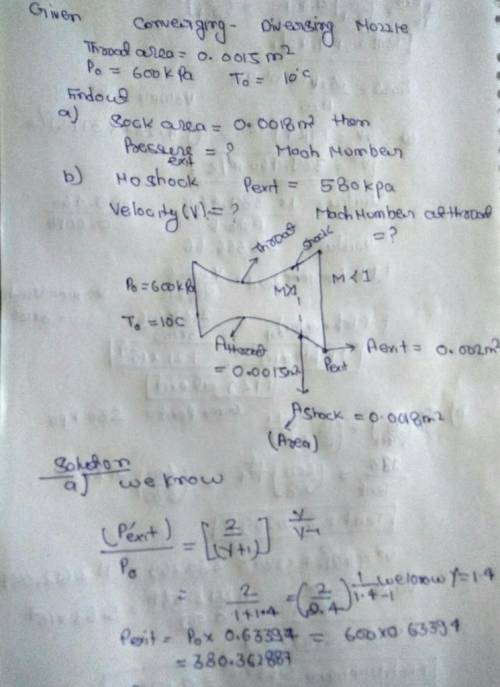 Given
Converging - Diversing Nozzle
Throad area = 0.0015 m²
P₀ = 600 kPa T₀ = 10°C
Findout
a) Sock area = 0.0018 m² then
Pressure exit = ? Mach Number
b) No shock Pexit = 580 kpa
Velocity (V) = ? Mach Number at throat = ?
Throat
shock
P₀ = 600 kPa
M>1
M < 1
T₀ = 10°C
Athroat = 0.0015 m²
Pexit
Aexit = 0.002 m²
AShock = 0.0018 m²
(Area)
Solution
a) we know
(Pexit) / P₀ = [2 / (γ+1)] γ / γ-1
= 2 / 1+1.4 = (2 / 2.4) 1 / 1.4-1 we know γ = 1.4
Pexit = P₀ × 0.63394 = 600 × 0.63394
= 380.362887